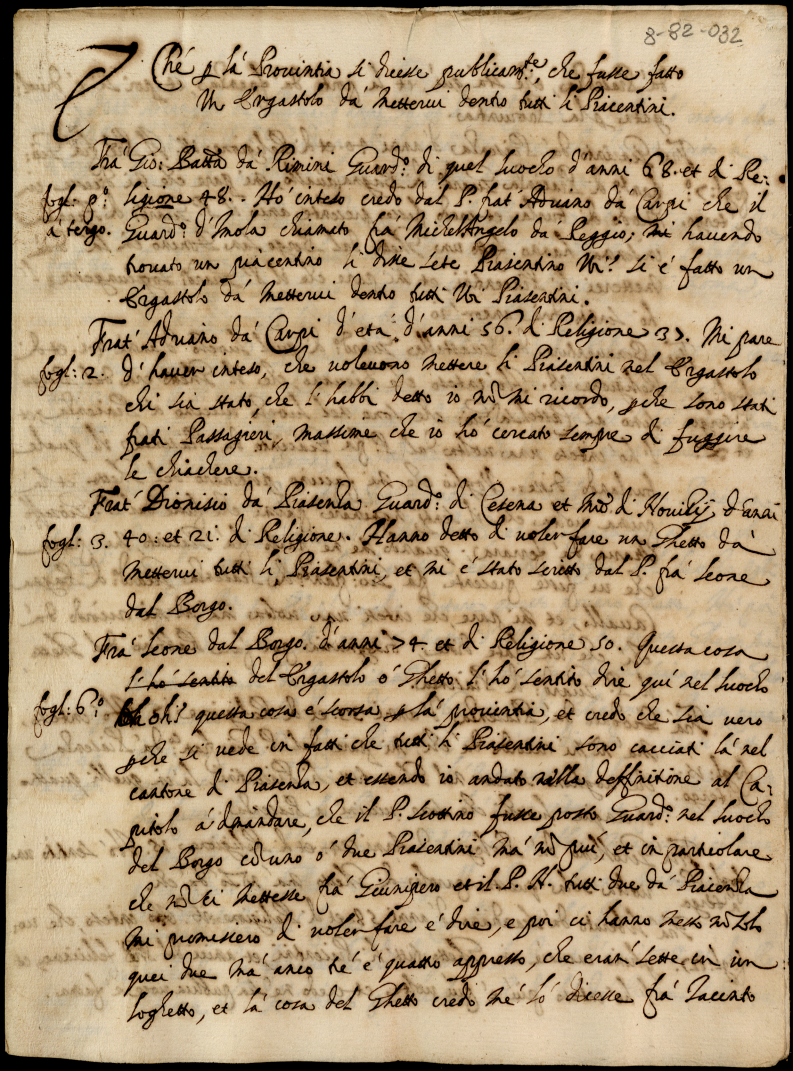 8-82-032
Ché p la Prouintia si dicesse publicamte, che fusse fatto
Un Ergastolo da metterui dentro tutti li Piacentini.
Frà Gio: Batta da Rimini Guardo: di quel luocho d'anni 68. et di Re-
fogl: po: ligione 48. Hò inteso credo dal P. frat' Adriano dà Carpi che il
a tergo. Guardo: d'Imola chiamato frà Michel'Angelo dà Reggio; mi hauendo
trouato un piacentino li disse sete Piasentino Uoi? Si è fatto un
Ergastolo dà metterui dentro tutti Uoi Piasentini.
Frat' Adriano dà Carpi d'età d'anni 56. di Religione 37. Mi pare
fogl: 2. d'hauer inteso, che uoleuono mettere li Piasentini nel Ergastolo
chi sia stato, che l'habbi detto io nō mi ricordo, pche sono stati
frati Passagieri, massime che io hò cercato sempre di fuggire
le chiachere.
Frat' Dionisio dà Piasenza Guardo: di Cesena et mro di Nouitij d'anni
fogl: 3. 40: et 21. di Religione. Hanno detto di uoler fare un Ghetto dà
metterui tutti li Piasentini, et mi è stato scritto dal P. frà Leone
dal Borgo.
Frà Leone dal Borgo. d'anni 74. et di Religione 50. Questa cosa
l'hò sentito del Ergastolo ò Ghetto l'hò sentito dire qui nel luocho
fogl: 6o: oh! questa cosa è scorsa p la prouintia, et credo che sia uero
pche si uede in fatti che tutti li Piasentini sono cacciati là nel
cantone di Piasenza, et essendo io andato nella deffinitione al Ca-
pitolo à dmandare, che il P. Scottino fusse posto Guardo: nel luocho
del Borgo cō uno ò due Piasentini mà nō più, et in particolare
che nō ci mettesse frà Giunipero et il P. N. tutti due dà Piacenza
mi promissero di uoler fare è dire, e poi ci hanno messo nō solo
quei due mà anco tre è quattro appresso, che eran' sette in un
loghetto, et la cosa del Ghetto credo me lò dicesse frà Iacinto